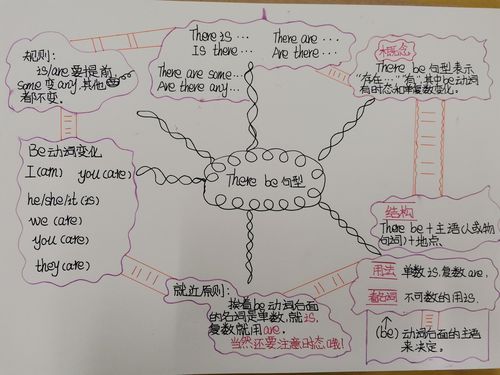 规则:
is/are要提前,
some变any,其他
都不变。
There is ...
Is there...
There are ...
Are there...
There are some...
Are there any...
概念
There be 句型表示
"存在…""有",其中be动词
有时态和单复数变化。
Be动词变化
I(am) you(are)
he/she/it(is)
we (are)
you(are)
they(are)
There be 句型
结构
There be+主语(人或物
句词)+地点.
用法 单数is.复数are.
看名词 不可数的用is.
(be)动词后面的主语
来决定。
就近原则:
挨着be动词后面
的名词是单数,就is,
复数就用are.
当然还要注意时态哦!